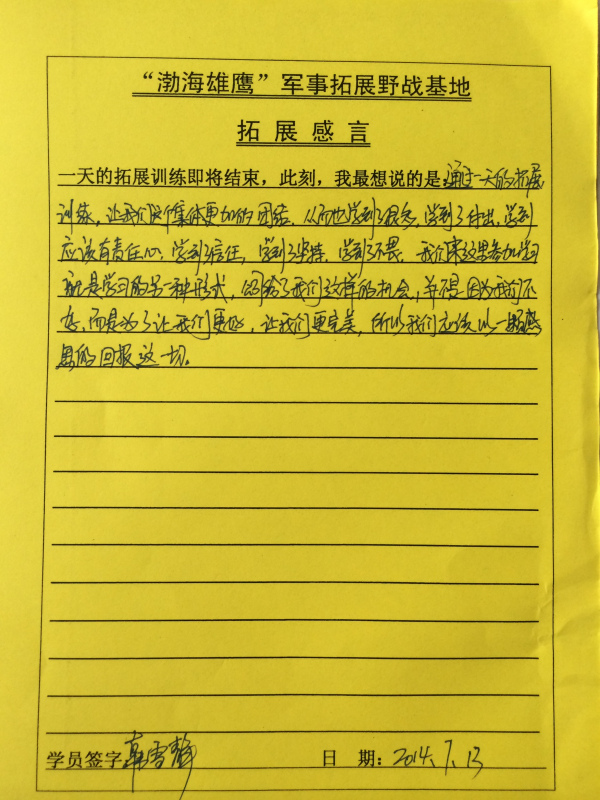 “渤海雄鹰”军事拓展野战基地
拓展感言
一天的拓展训练即将结束，此刻，我最想说的是：通过一天的拓展
训练，让我们这个集体更加的团结，从而也学到了很多，学到了付出，学到
应该有责任心，学到了信任，学到了坚持，学到了不畏，我们来这里参加学习
就是学习的另一种形式，给了我们这样的机会，并不是因为我们不
好，而是为了让我们更好，让我们更完美，所以我们应该以一颗感
恩的回报这一切。
学员签字 韩雪静 日 期：2014.7.13